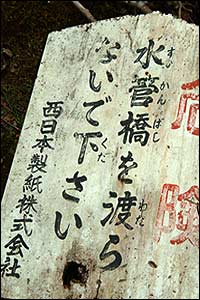 危険
すい かん ばし わた
水管橋を渡ら
くだ
ないで下さい
西日本製紙株式会社